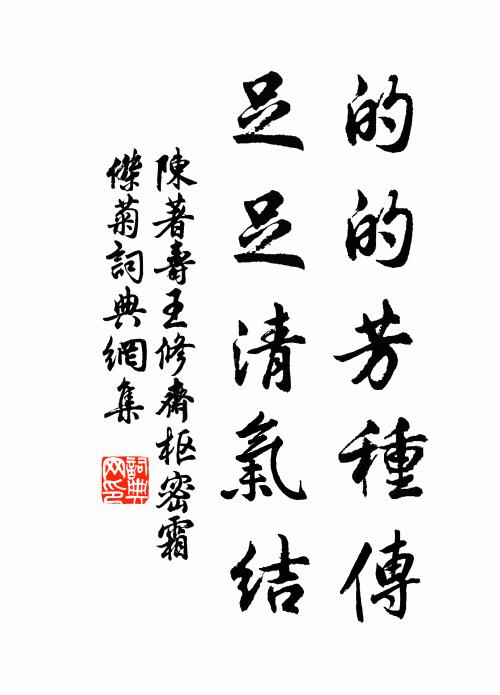 的的芳種傳
足足清氣結
陳著壽王修齋樞密霜
傑菊詞典網集
詞典網印